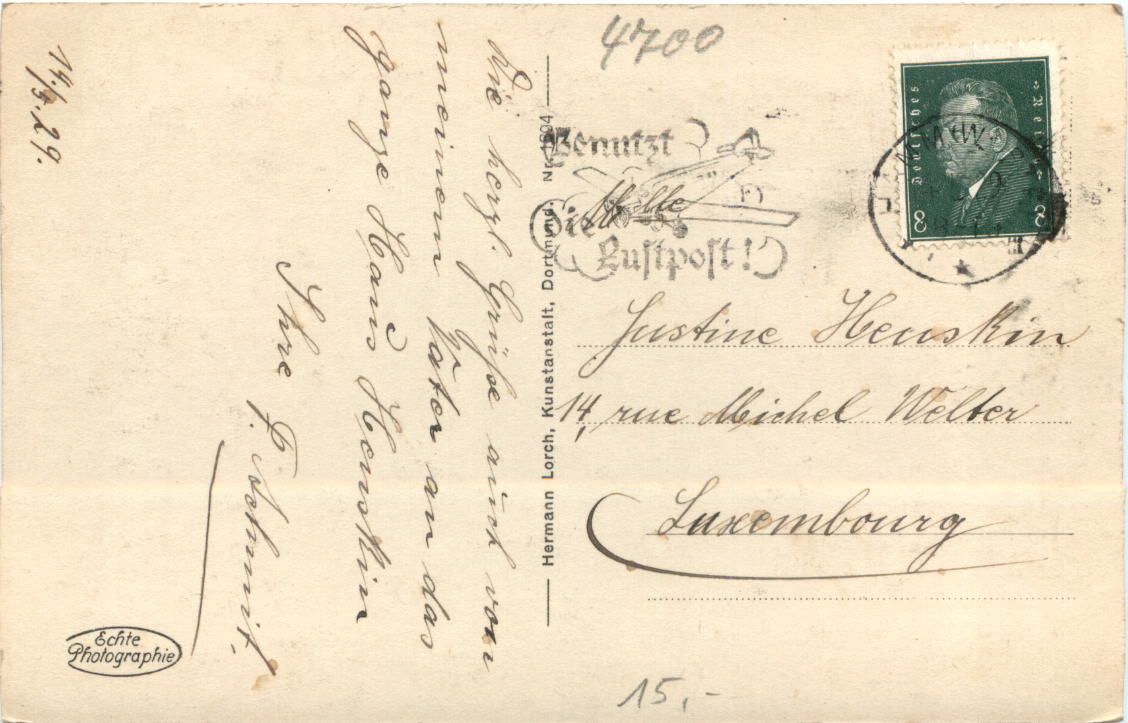 4700
Deutsches Reich
8 8
HAMM (W
Benutzt
die
Luftpost!
Mlle
Justine Heuskin
14, rue Michel Welter
Luxembourg
15,-
Hermann Lorch, Kunstanstalt, Dortmund. Nr. 1804
Die herzl. Grüße auch von
meinem Vater an das
ganze Haus Heuskin
Ihre F. Schmit.
14/3.29.
Echte
Photographie